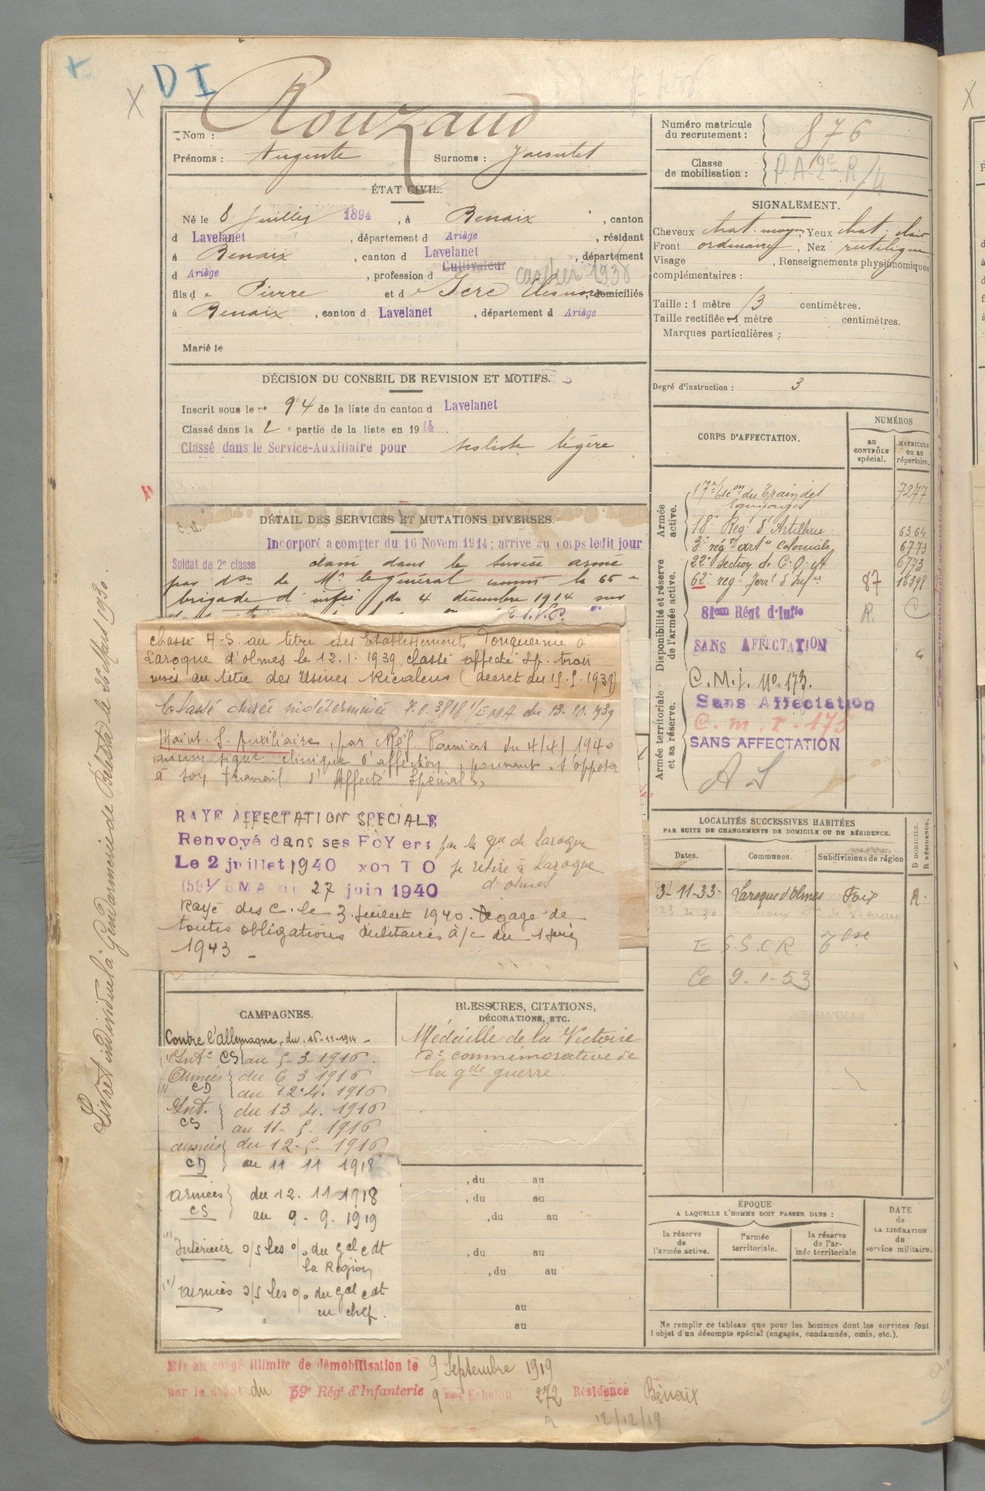 DI
Nom : Rouzaud
Prénoms : Auguste Surnoms :
Numéro matricule du recrutement : 876
Classe de mobilisation : P.A. 2e R/4
ÉTAT CIVIL.
Né le 8 Juillet 1894, à Benaix, canton
d Lavelanet, département d Ariège, résidant
à Benaix, canton d Lavelanet, département
d Ariège, profession d Cultivateur 1936
fils d Pierre et d Eléonore, domiciliés
à Benaix, canton d Lavelanet, département d Ariège
Marié le
SIGNALEMENT.
Cheveux chat. moyen, Yeux chat. clair
Front ordinaire, Nez rectiligne
Visage , Renseignements physionomiques
complémentaires :
Taille : 1 mètre 73 centimètres.
Taille rectifiée 1 mètre centimètres.
Marques particulières :
Degré d'instruction : 3
DÉCISION DU CONSEIL DE REVISION ET MOTIFS.
Inscrit sous le n° 94 de la liste du canton d Lavelanet
Classé dans la 2e partie de la liste en 1914
Classé dans le Service-Auxiliaire pour légère
DÉTAIL DES SERVICES ET MUTATIONS DIVERSES.
Incorporé a compter du 16 Novem. 1914; arrivé au corps ledit jour
Soldat de 2e classe dans le service armé
par Don de Mr le général comm. la 66e
brigade d'infie du 4 décembre 1914 sur
classé A.S. au titre des Etablissements Fonquernie à
Laroque d'olmes le 12.1.1939, classé affecté Sp. trois
mois au titre des Usines Ricalens (décret du 15.5.1939)
Classé durée indéterminée 1/EMA du 13.10.939
Maint. S. Auxiliaires, par Réf. Pamiers du 4/4/1940
aucun signe clinique d'affection, pouvant s'opposer
à son travail d'Affecté Spécial.
RAYE AFFECTATION SPECIALE
Renvoyé dans ses FOYers par la gie de Laroque
Le 2 juillet 1940 se retire à Laroque
d'olmes
1591/EMA du 27 juin 1940
Rayé des c. le 3 juillet 1940. Dégagé de
toutes obligations militaires à/c du 1 Juin
1943
CORPS D'AFFECTATION.
NUMÉROS
AU CONTRÔLE spécial.
MATRICULE OU AU répertoire.
Armée active.
17e Escon du Train des Equipages 7277
18e Régt d'Artillerie 6364
3e régt arte Coloniale 6773
Disponibilité et réserve de l'armée active.
22e Section de C.O. 6773
62e regt 87 16398
81ème Régt d'Infie R.
SANS AFFECTATION
Armée territoriale et sa réserve.
C.M.I. no. 173.
Sans Affectation
C.m.I. 173
SANS AFFECTATION
A S
LOCALITÉS SUCCESSIVES HABITÉES
PAR SUITE DE CHANGEMENTS DE DOMICILE OU DE RÉSIDENCE.
Dates. Communes. Subdivisions de région D DOMICILE. R RÉSIDENCE.
3-11-33 Laroque d'Olmes Foix R.
E S.S.C.R.
Ce 9.1.53
CAMPAGNES.
Contre l'allemagne, du 16-11-1914
Intr CS au 5-3-1916.
Armées CD du 6 3 1916
au 12.4.1916
Int. CS du 13 4. 1916
au 11-5-1916
armées CD du 12-5-1916
au 11 11 1918
armées CS du 12.11 1918
au 9-9-1919
Intérieur s/s les o/o du Gal cdt
la Région
armées s/s les o/o du Gal cdt
en chef.
BLESSURES, CITATIONS,
DÉCORATIONS, ETC.
Médaille de la Victoire
do commémorative de
la gde guerre.
, du au
, du au
, du au
, du au
, du au
au
au
ÉPOQUE
A LAQUELLE L'HOMME DOIT PASSER DANS :
la réserve de l'armée active.
l'armée territoriale.
la réserve de l'armée territoriale
DATE de LA LIBÉRATION du service militaire.
Ne remplir ce tableau que pour les hommes dont les services font
l'objet d'un décompte spécial (engagés, condamnés, omis, etc.).
Mis en congé illimité de démobilisation le 9 Septembre 1919
par le dépôt du 59e Régt d'Infanterie 9eme Echelon 272 Résidence Bénaix
12/12/19